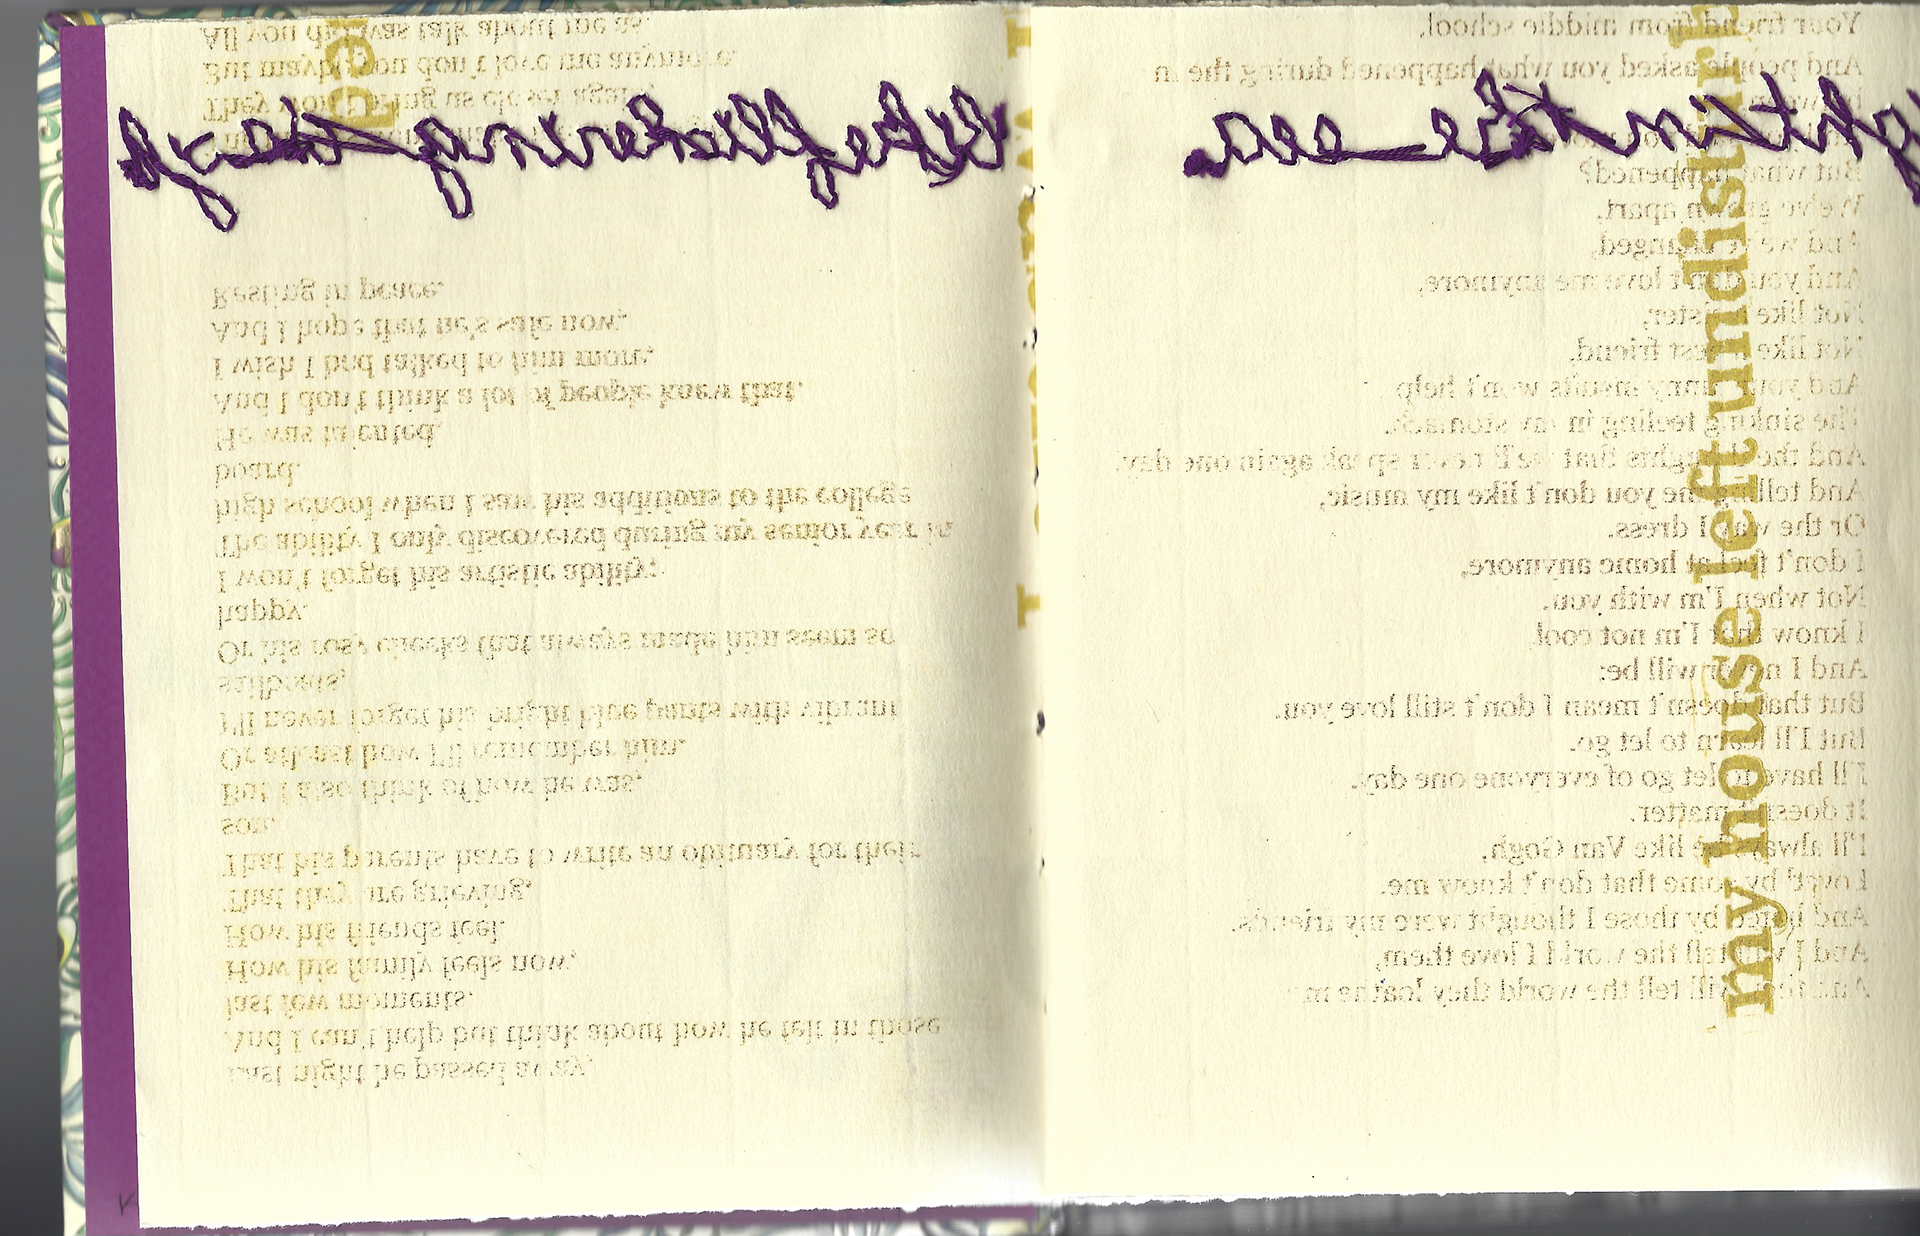 Last night he passed away,
And I can't help but think about how he felt in those
last few moments.
How his family feels now,
How his friends feel.
That they are grieving,
That his parents have to write an obituary for their
son.
But I also think of how he was,
Or atleast how I'll remember him.
I'll never forget his bright blue pants with vibrant
sailboats,
Or his rosy cheeks that always made him seem so
happy.
I won't forget his artistic ability;
The ability I only discovered during my senior year in
high school when I saw his additions to the college
board.
He was talented,
And I don't think a lot of people knew that.
I wish I had talked to him more,
And I hope that he's safe now,
Resting in peace.
They won't bring us closer again,
But maybe you don't love me anymore.
All you did was talk about me as.
like flickering
Your friend from middle school.
And people asked you what happened during the in
But what happened?
We've grown apart.
And we've changed,
And you don't love me anymore,
Not like a sister,
Not like a best friend.
And your funny insults won't help
The sinking feeling in my stomach.
And the thoughts that we'll never speak again one day.
And telling me you don't like my music,
Or the way I dress.
I don't feel at home anymore,
Not when I'm with you.
I know that I'm not cool
And I never will be;
But that doesn't mean I don't still love you.
But I'll learn to let go.
I'll have to let go of everyone one day.
It doesn't matter.
I'll always be like Van Gogh,
Loved by some that don't know me.
And hated by those I thought were my friends.
And I will tell the world I love them,
And they will tell the world they loathe me
my house left undisturb